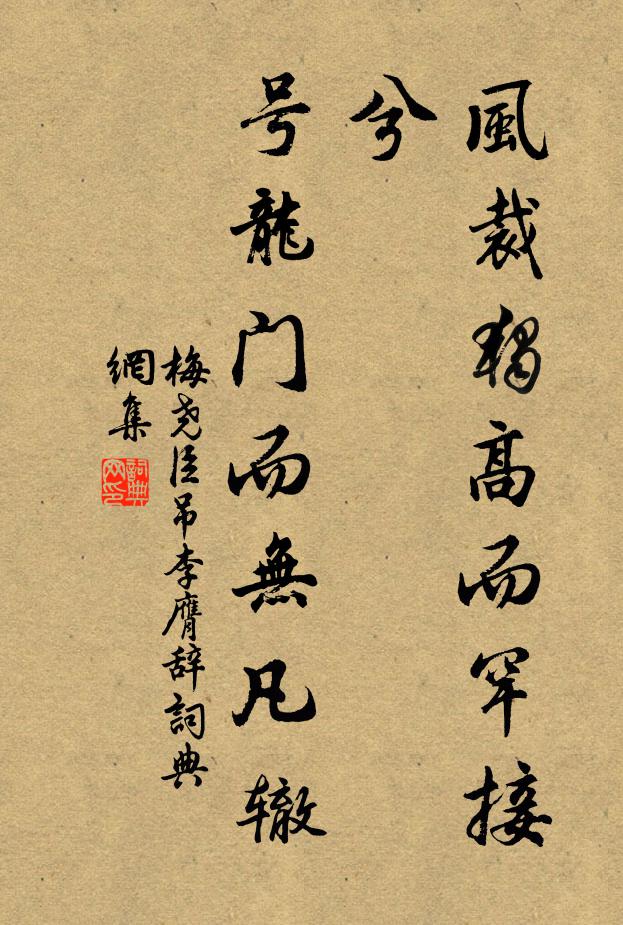 風裁獨高而罕接
兮
号龍门而無凡辙
梅尧臣吊李膺辞詞典
網集
詞典網印